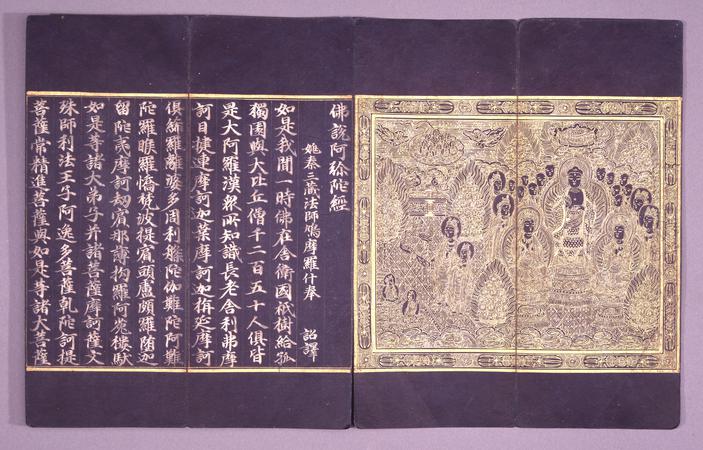 佛說阿弥陀經
姚秦三藏法師鳩摩羅什奉 詔譯
如是我聞一時佛在舍衛國祇樹給孤
獨園與大比丘僧千二百五十人俱皆
是大阿羅漢衆所知識長老舍利弗摩
訶目揵連摩訶迦葉摩訶迦栴延摩訶
俱絺羅離婆多周利槃陀伽難陀阿難
陀羅睺羅憍梵波提賓頭盧頗羅墮迦
留陀夷摩訶劫賓那薄拘羅阿㝹樓馱
如是等諸大弟子并諸菩薩摩訶薩文
殊師利法王子阿逸多菩薩乾陀訶提
菩薩常精進菩薩與如是等諸大菩薩